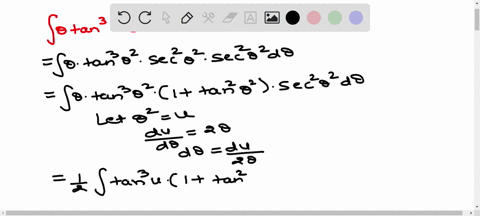 ∫θ tan³
= ∫θ · tan³θ² · sec²θ² · sec²θ² dθ
= ∫θ · tan³θ² · (1 + tan²θ²) · sec²θ² dθ
Let θ² = u
du/dθ = 2θ
dθ = du/2θ
= 1/2 ∫ tan³u · (1 + tan²